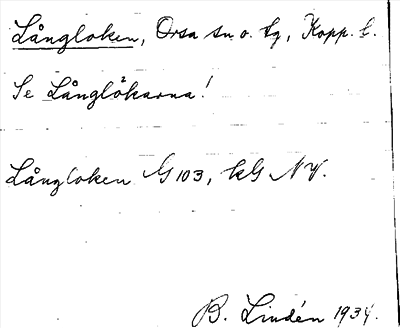 Långloken, Orsa sn o. tg, Kopp. l.
Se Långlökarna!
Långloken G 103, kG NV.
B. Lindén 1934.